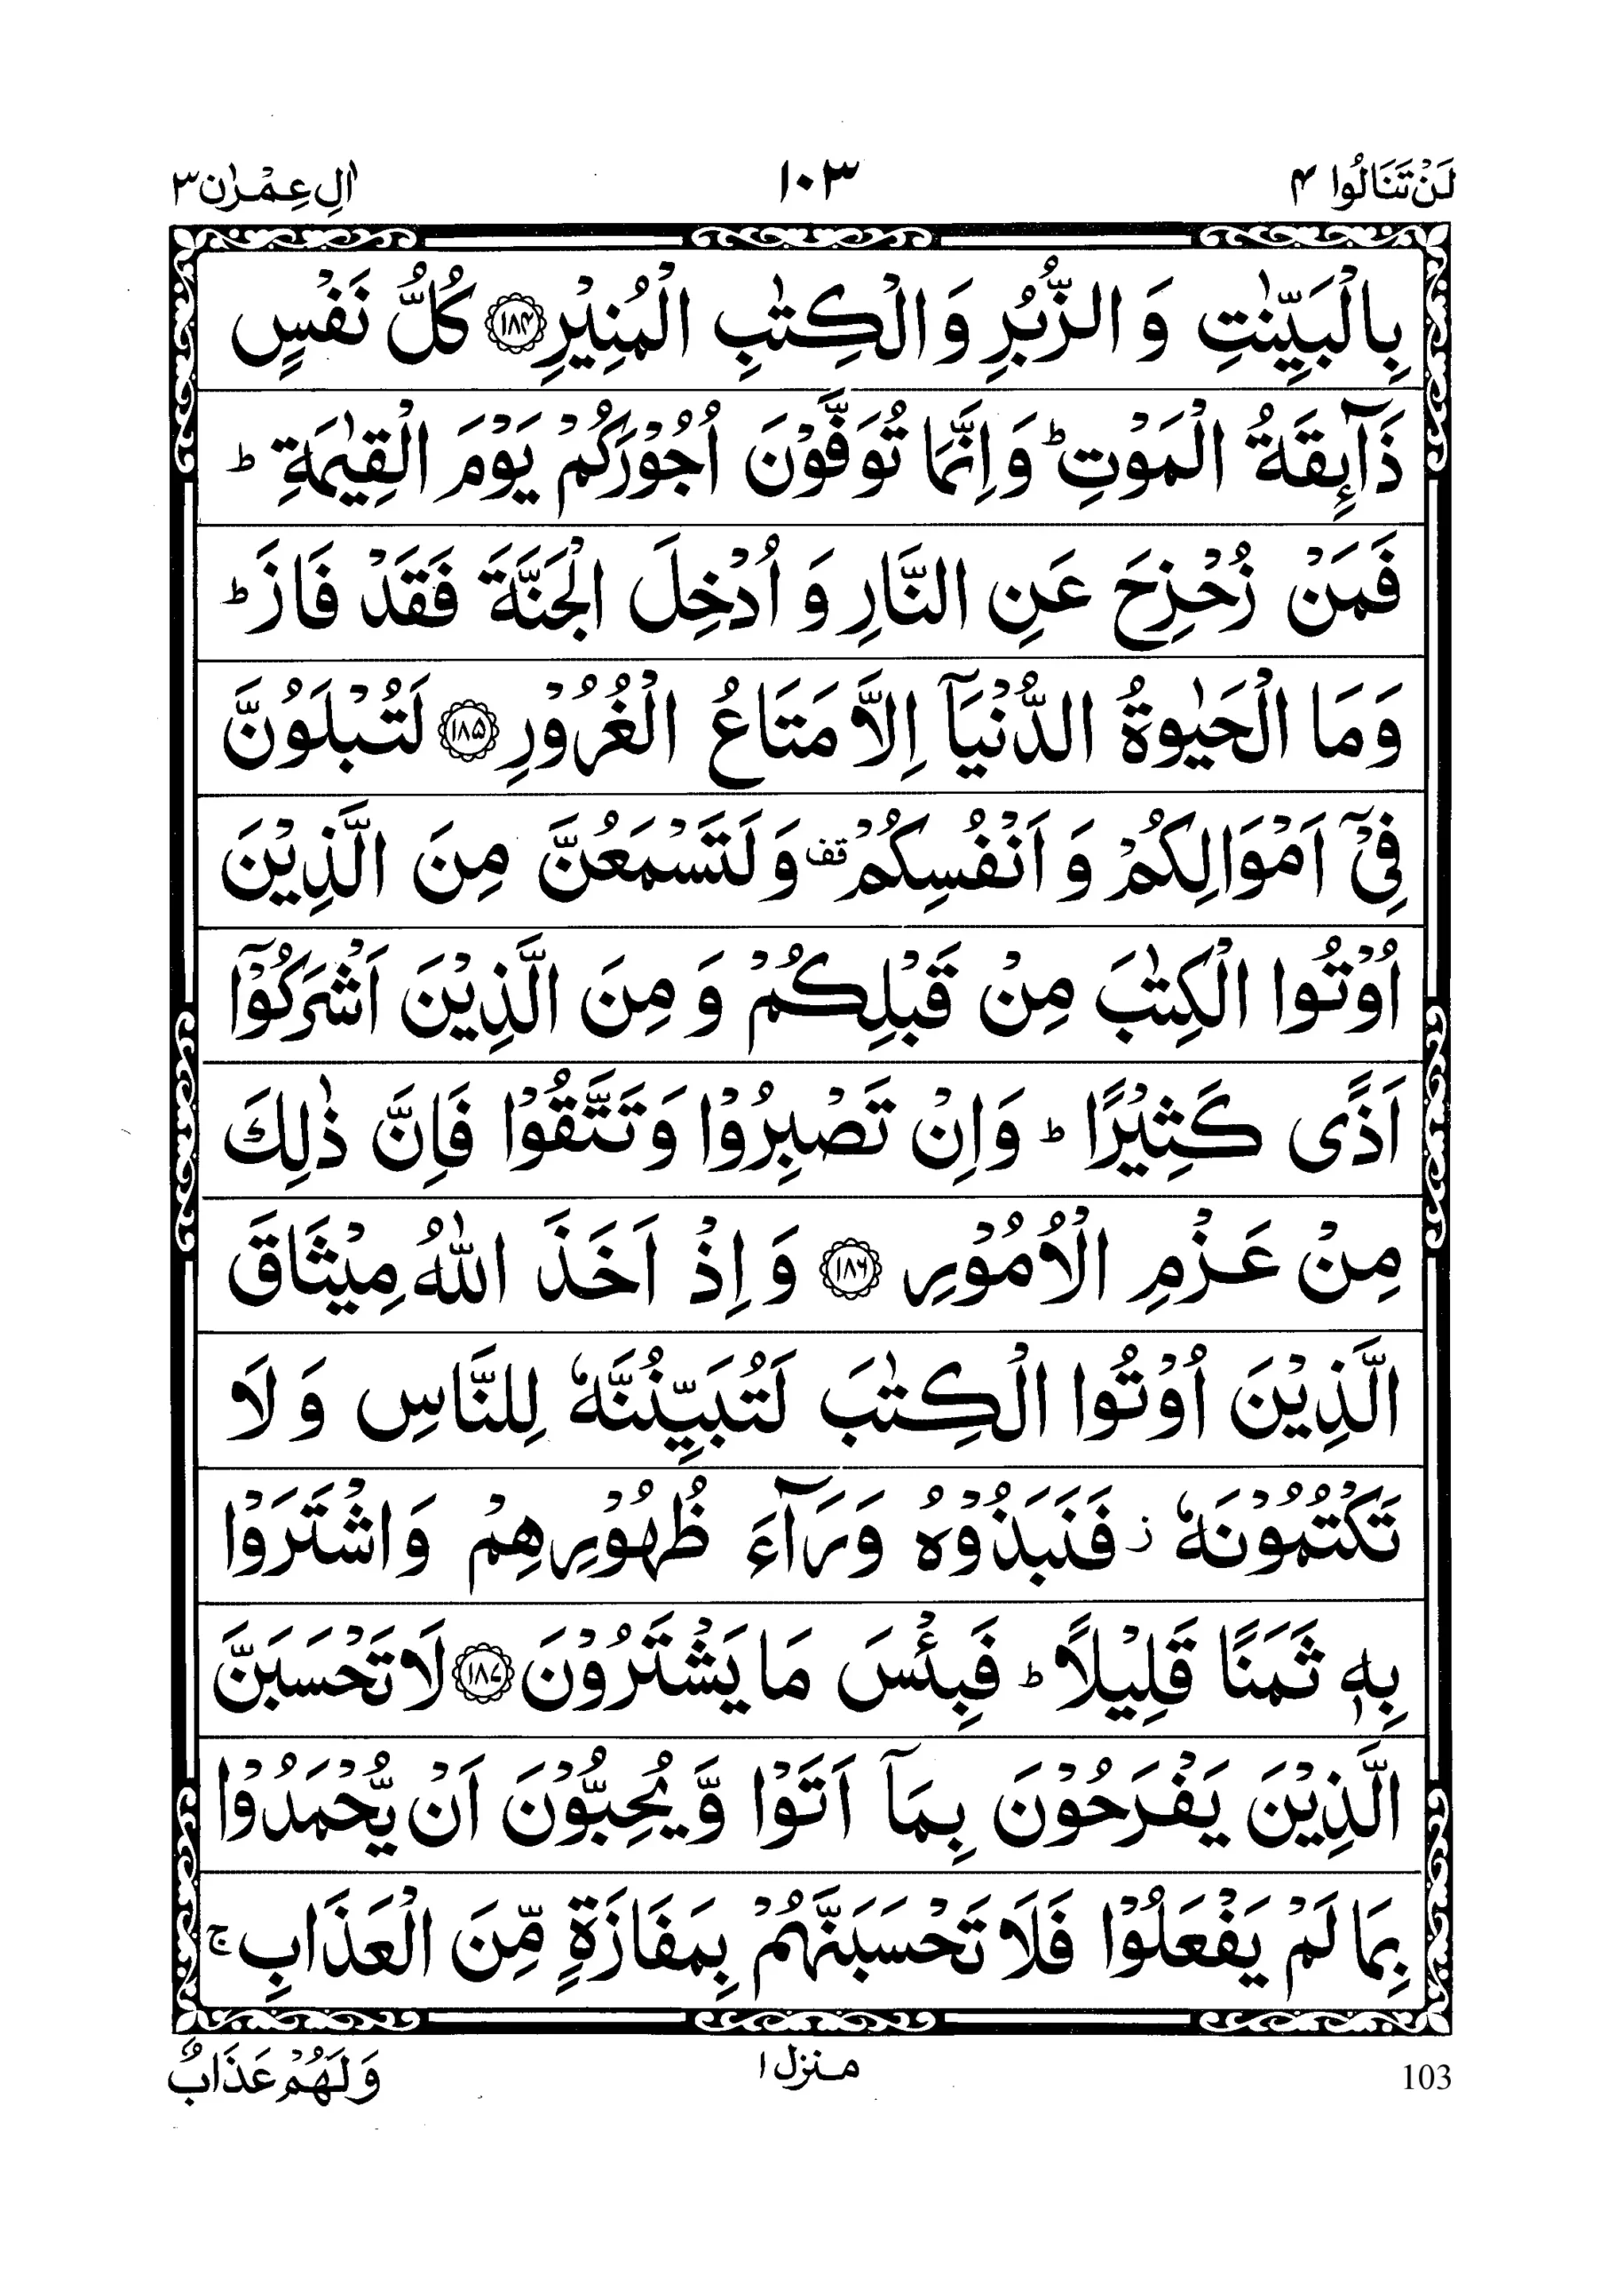 لَنْ تَنَالُوا ۴
١٠٣
اٰلِ عِمْرٰن ٣
بِالْبَيِّنٰتِ وَ الزُّبُرِ وَ الْكِتٰبِ الْمُنِيْرِ ﴿۱۸۴﴾ كُلُّ نَفْسٍ
ذَآىِٕقَةُ الْمَوْتِ ؕ وَ اِنَّمَا تُوَفَّوْنَ اُجُوْرَكُمْ يَوْمَ الْقِيٰمَةِ ؕ
فَمَنْ زُحْزِحَ عَنِ النَّارِ وَ اُدْخِلَ الْجَنَّةَ فَقَدْ فَازَ ؕ
وَ مَا الْحَيٰوةُ الدُّنْيَاۤ اِلَّا مَتَاعُ الْغُرُوْرِ ﴿۱۸۵﴾ لَتُبْلَوُنَّ
فِيْۤ اَمْوَالِكُمْ وَ اَنْفُسِكُمْ قف وَ لَتَسْمَعُنَّ مِنَ الَّذِيْنَ
اُوْتُوا الْكِتٰبَ مِنْ قَبْلِكُمْ وَ مِنَ الَّذِيْنَ اَشْرَكُوْۤا
اَذًى كَثِيْرًا ؕ وَ اِنْ تَصْبِرُوْا وَ تَتَّقُوْا فَاِنَّ ذٰلِكَ
مِنْ عَزْمِ الْاُمُوْرِ ﴿۱۸۶﴾ وَ اِذْ اَخَذَ اللّٰهُ مِيْثَاقَ
الَّذِيْنَ اُوْتُوا الْكِتٰبَ لَتُبَيِّنُنَّهٗ لِلنَّاسِ وَ لَا
تَكْتُمُوْنَهٗ ز فَنَبَذُوْهُ وَرَآءَ ظُهُوْرِهِمْ وَ اشْتَرَوْا
بِهٖ ثَمَنًا قَلِيْلًا ؕ فَبِئْسَ مَا يَشْتَرُوْنَ ﴿۱۸۷﴾ لَا تَحْسَبَنَّ
الَّذِيْنَ يَفْرَحُوْنَ بِمَاۤ اَتَوْا وَّ يُحِبُّوْنَ اَنْ يُّحْمَدُوْا
بِمَا لَمْ يَفْعَلُوْا فَلَا تَحْسَبَنَّهُمْ بِمَفَازَةٍ مِّنَ الْعَذَابِ ۚ
103
منزل ١
وَ لَهُمْ عَذَابٌ